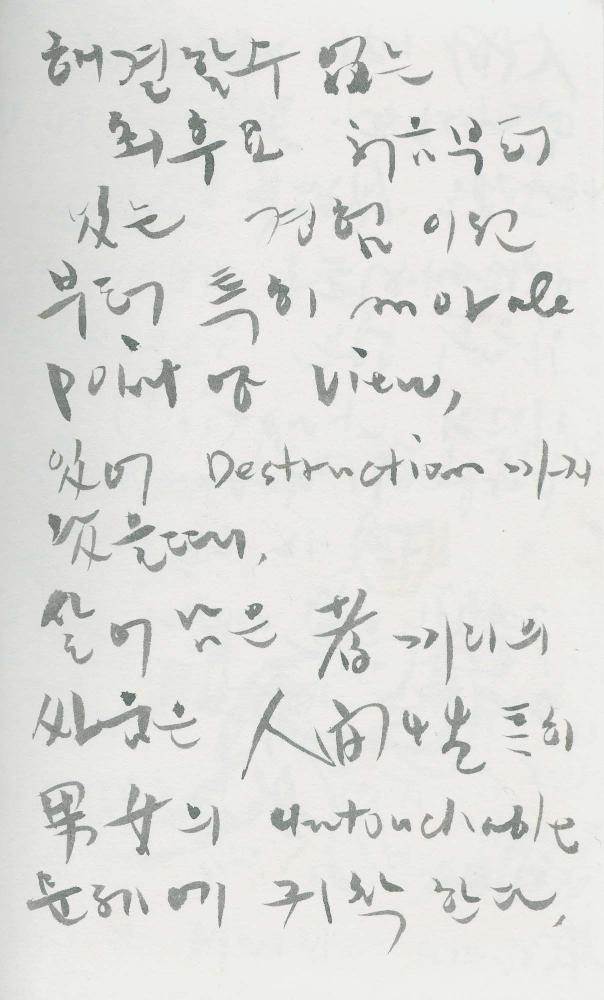 해결할수 없는
최후로 처음부터
있는 경험 이전
부터 특히 morale
point of view,
있어 Destruction 까지
갔을때,
살아 남은 者 끼리의
싸움은 人間性 특히
男女의 untouchable
문제에 귀착 한다,